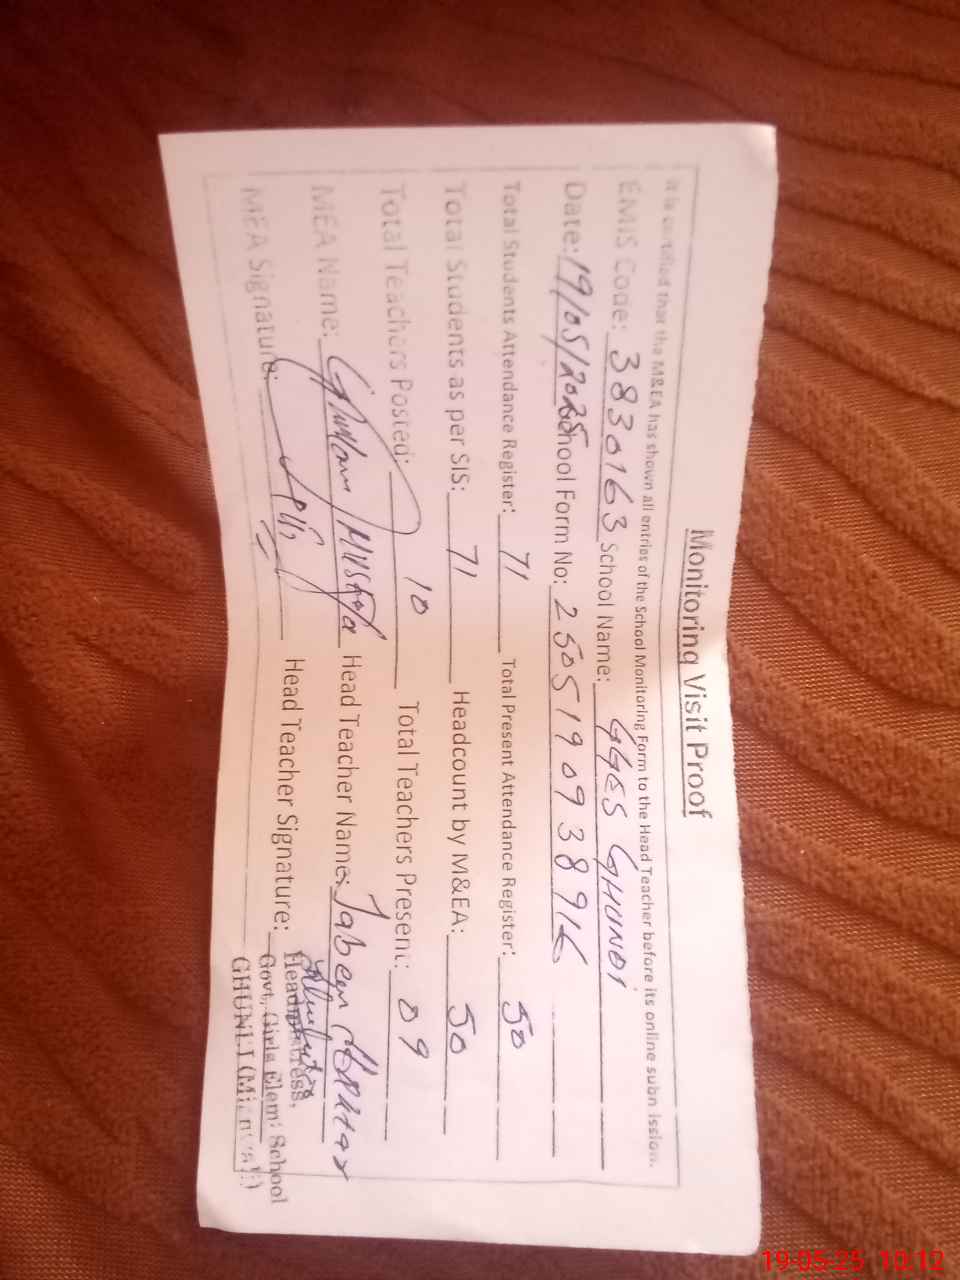 Monitoring Visit Proof
It is certified that the M&EA has shown all entries of the School Monitoring Form to the Head Teacher before its online submission.
EMIS Code: 38330163 School Name: GGES GHUNDI
Date: 19/05/2025 School Form No: 2505190938916
Total Students Attendance Register: 71 Total Present Attendance Register: 50
Total Students as per SIS: 71 Headcount by M&EA: 50
Total Teachers Posted: 10 Total Teachers Present: 09
MEA Name: Ghulam Mustafa Head Teacher Name: Jabeen Akhtar
MEA Signature: Head Teacher Signature:
Headmistress,
Govt; Girls Elem: School
GHUNDI (Mianwali)
19-05-25 10:12